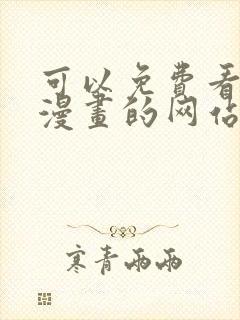 可以免費看
漫畫的网站
寒青雨雨